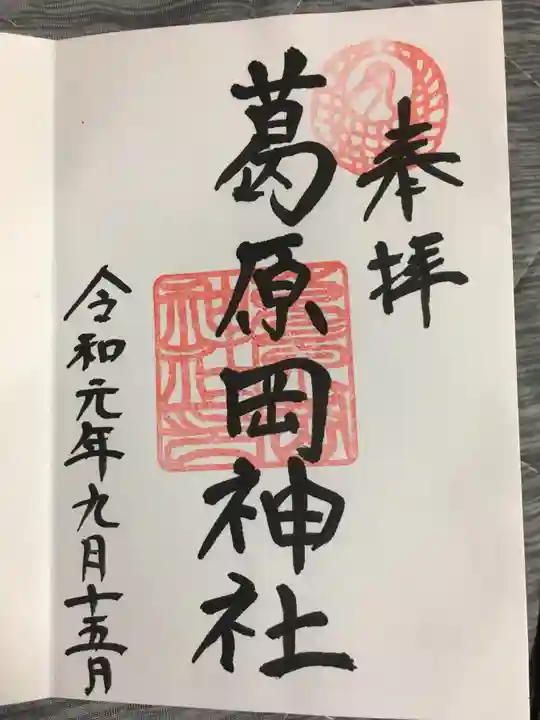 奉拝
葛原岡神社
令和元年九月十五月